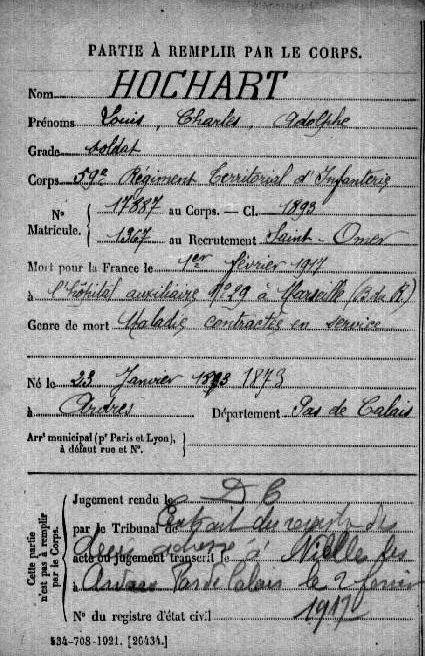 PARTIE À REMPLIR PAR LE CORPS.
Nom HOCHART
Prénoms Louis, Charles, Adolphe
Grade Soldat
Corps 59e Régiment Territorial d'Infanterie
N° Matricule. { 17887 au Corps. — Cl. 1893
1267 au Recrutement Saint-Omer
Mort pour la France le 1er février 1917
à l'hôpital auxiliaire N°29 à Marseille (B du R)
Genre de mort Maladie contractée en service
Né le 23 Janvier 1893 1873
à Ardres Département Pas de Calais
Arrt municipal (pr Paris et Lyon),
à défaut rue et N°.
Cette partie n'est pas à remplir par le Corps.
Jugement rendu le D C
par le Tribunal de Extrait du registre des
acte ou jugement transcrit le à Nielles les
à Ardres Pas de Calais le 2 février
1917
N° du registre d'état civil
534-708-1921. [26434.]